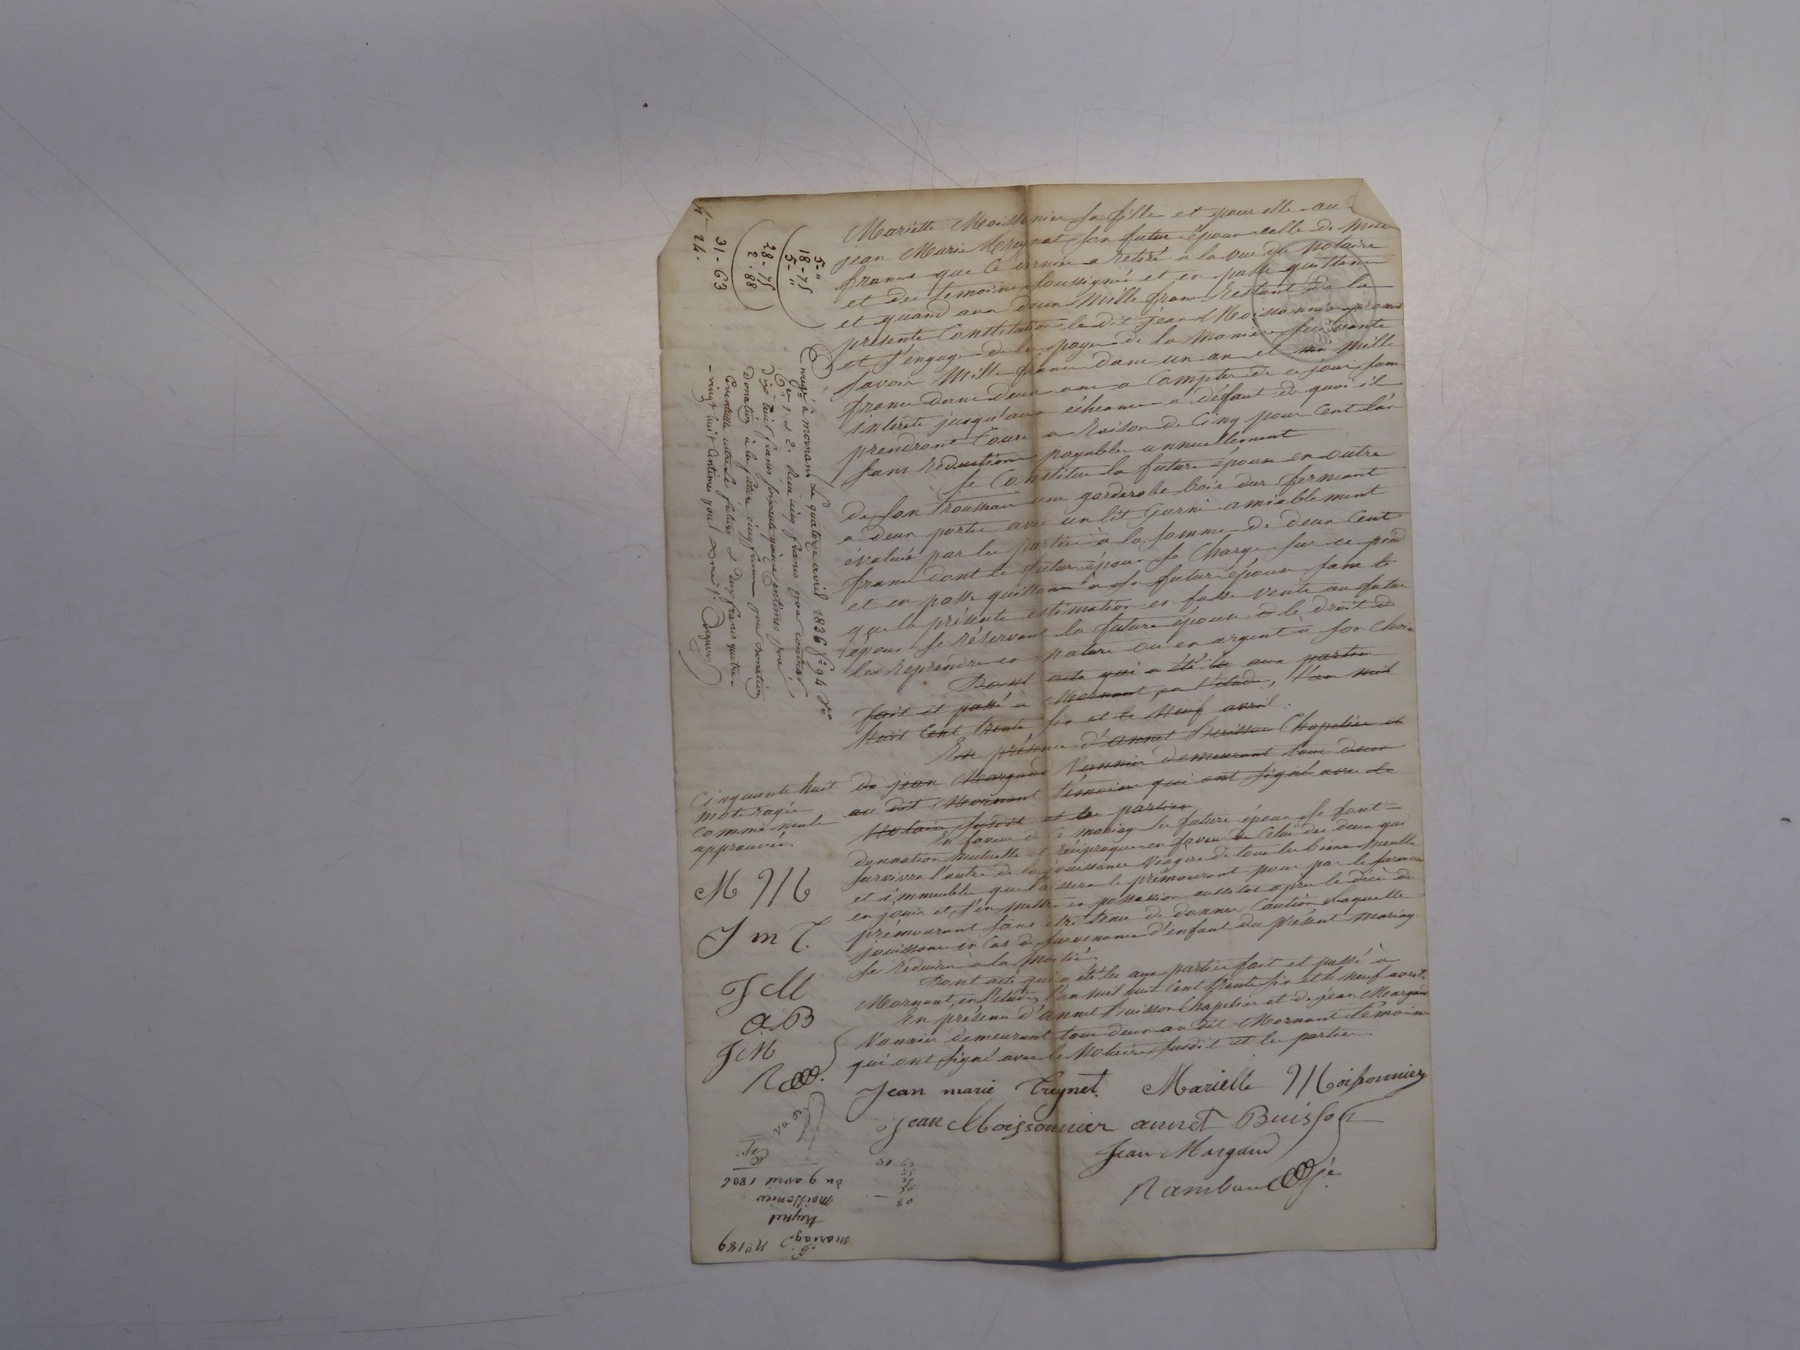 Mariette Moissonnier sa fille et pour elle au
jean Marie Treynet son futur époux celle de Mille
francs que ce dernier a retiré à la vue du Notaire
et des témoins soussignés et en passe quittance
et quand aux deux Mille francs Restant de la
présente Constitution le dit jean Moissonnier promet
et s'engage de les payer de la Manière suivante
savoir Mille francs dans un an et Mille
francs dans deux ans a Compter de ce jour sans
intérêts jusqu'aux échéances a défaut de quoi il
prendront Cours a Raison de Cinq pour Cent l'an
sans Réduction payables annuellement
se Constitue la future épouse en outre
de son trousseau une garderobe bois dur fermant
a deux portes avec un lit garni amiablement
évalués par les parties à la somme de deux Cent
francs dont le futur époux se Charge sur ce pied
et en passe quittance à sa future épouse sans
que la présente estimation en fasse vente au futur
époux se réservant la future épouse le droit de
les Reprendre en Nature ou en argent à son Choix
Dont acte qui a été lu aux parties
fait et passé à Mornant en l'étude, l'an mil
huit Cent trente six et le Neuf avril.
En présence d'annet Buisson Chapelier et
de jean Margand Vannier demeurant tous deux
au dit Mornant témoins qui ont signé avec le
Notaire susdit et les parties
En faveur de Ce mariage les futurs époux se font
donnation Mutuelle et réciproque en faveur de Celui des deux qui
survivra l'autre de la jouissance Viagère de tous les biens Meubles
et immeubles que laissera le prémourant pour par le survivant
en jouir et s'en mettre en possession aussitot après le décès du
prémourant sans etre tenu de donner Caution laquelle
jouissance en Cas de survenance d'enfant du présent mariage
se réduira à la Moitié.
Dont acte qui a été lu aux parties fait et passé à
Mornant, en l'étude, l'an mil huit Cent trente six et le neuf avril.
En présence d'annet Buisson Chapelier et de jean Margand
Vannier demeurant tous deux au dit Mornant témoins
qui ont signé avec le Notaire susdit et les parties.
Jean marie Treynet. Mariette Moissonnier
Jean Moissonnier annet Buisson
Jean Margand
Rambau
Cinquante huit
mots rayés
comme nuls
approuvés.
M M
J m T.
J M
a B
J M
R
5-"
18-75
5-"
28-75
2.88
31-63
24.
Enregé à mornant Le quatorze avril 1836 fo 94
1. et 2. Reçu cinq francs pour contrat,
dix huit francs soixante quinze centimes pour
Donation à la future cinq francs pour donation
Eventuelle entre les futurs et deux francs quatre-
-vingt huit centimes pour
No 189
Mariage
treynet
moissonier
du 9 avril 1836